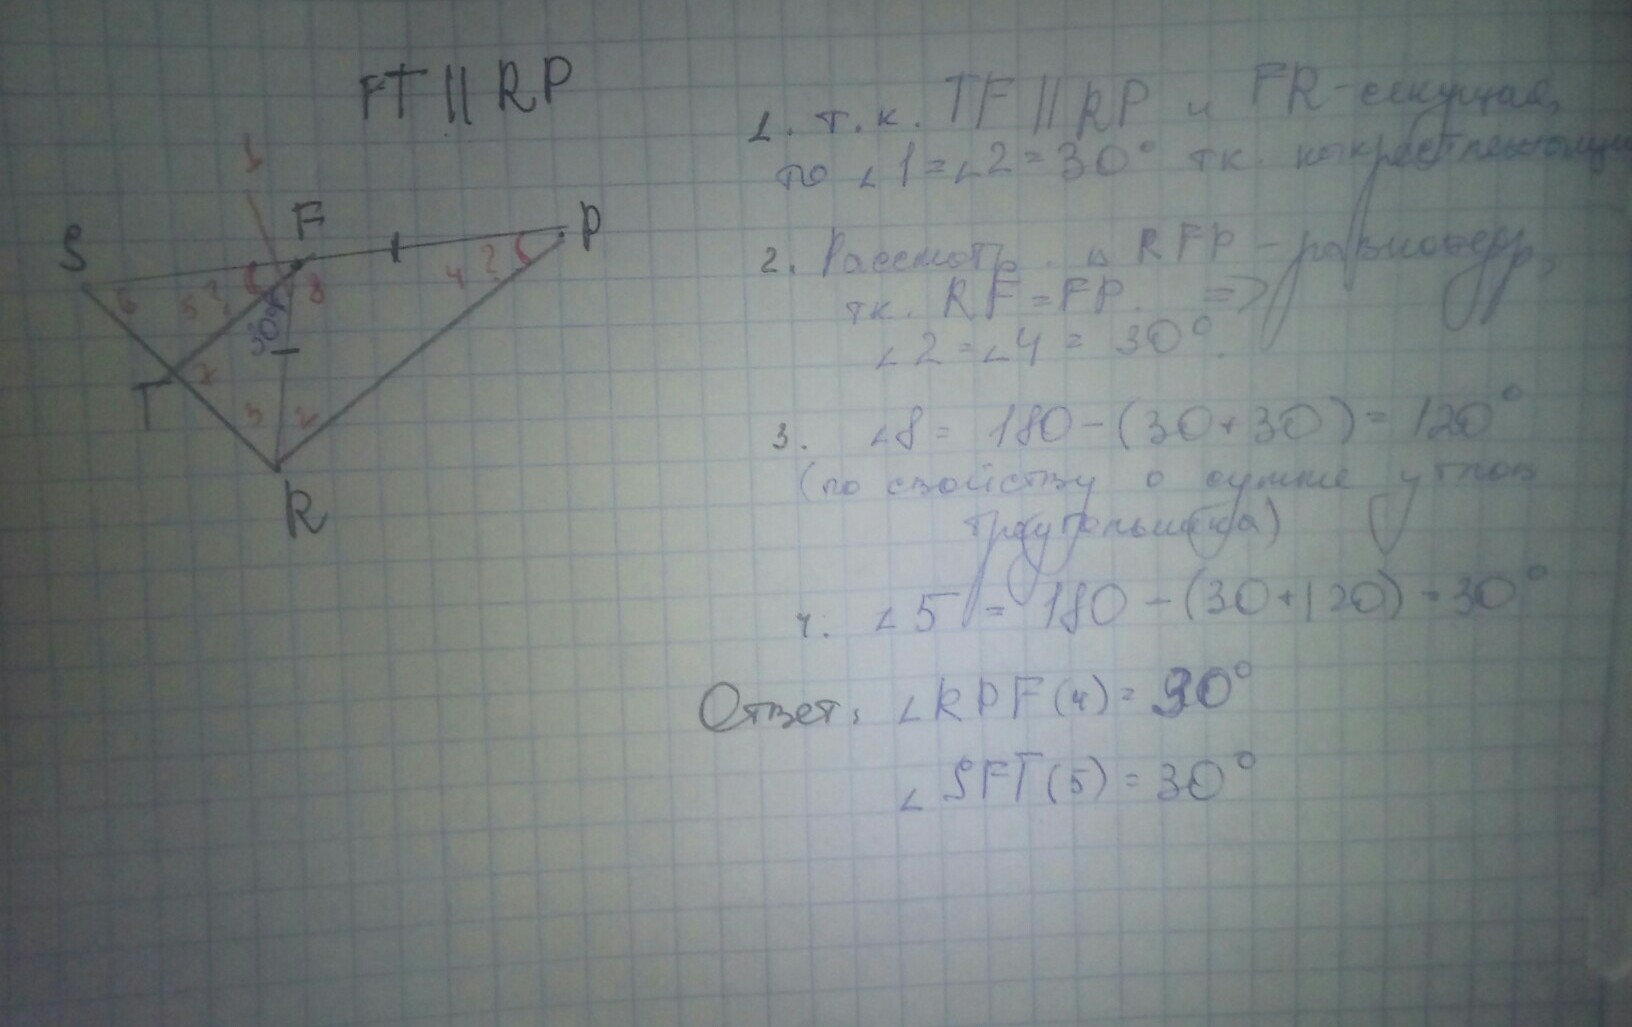 FT || RP
1
S
F
P
6
5 ?
8
4 ?
30°
T
7
3
2
R
1. т.к. TF || RP и FR - секущая,
то ∠1 = ∠2 = 30° тк. накрестлежащие
2. Рассмотр. △ RFP - равнобедр,
тк. RF = FP. =>
∠2 = ∠4 = 30°.
3. ∠8 = 180 - (30 + 30) = 120°
(по свойству о сумме углов
треугольника)
4. ∠5 = 180 - (30 + 120) = 30°
Ответ: ∠RPF (4) = 30°
∠SFT (5) = 30°